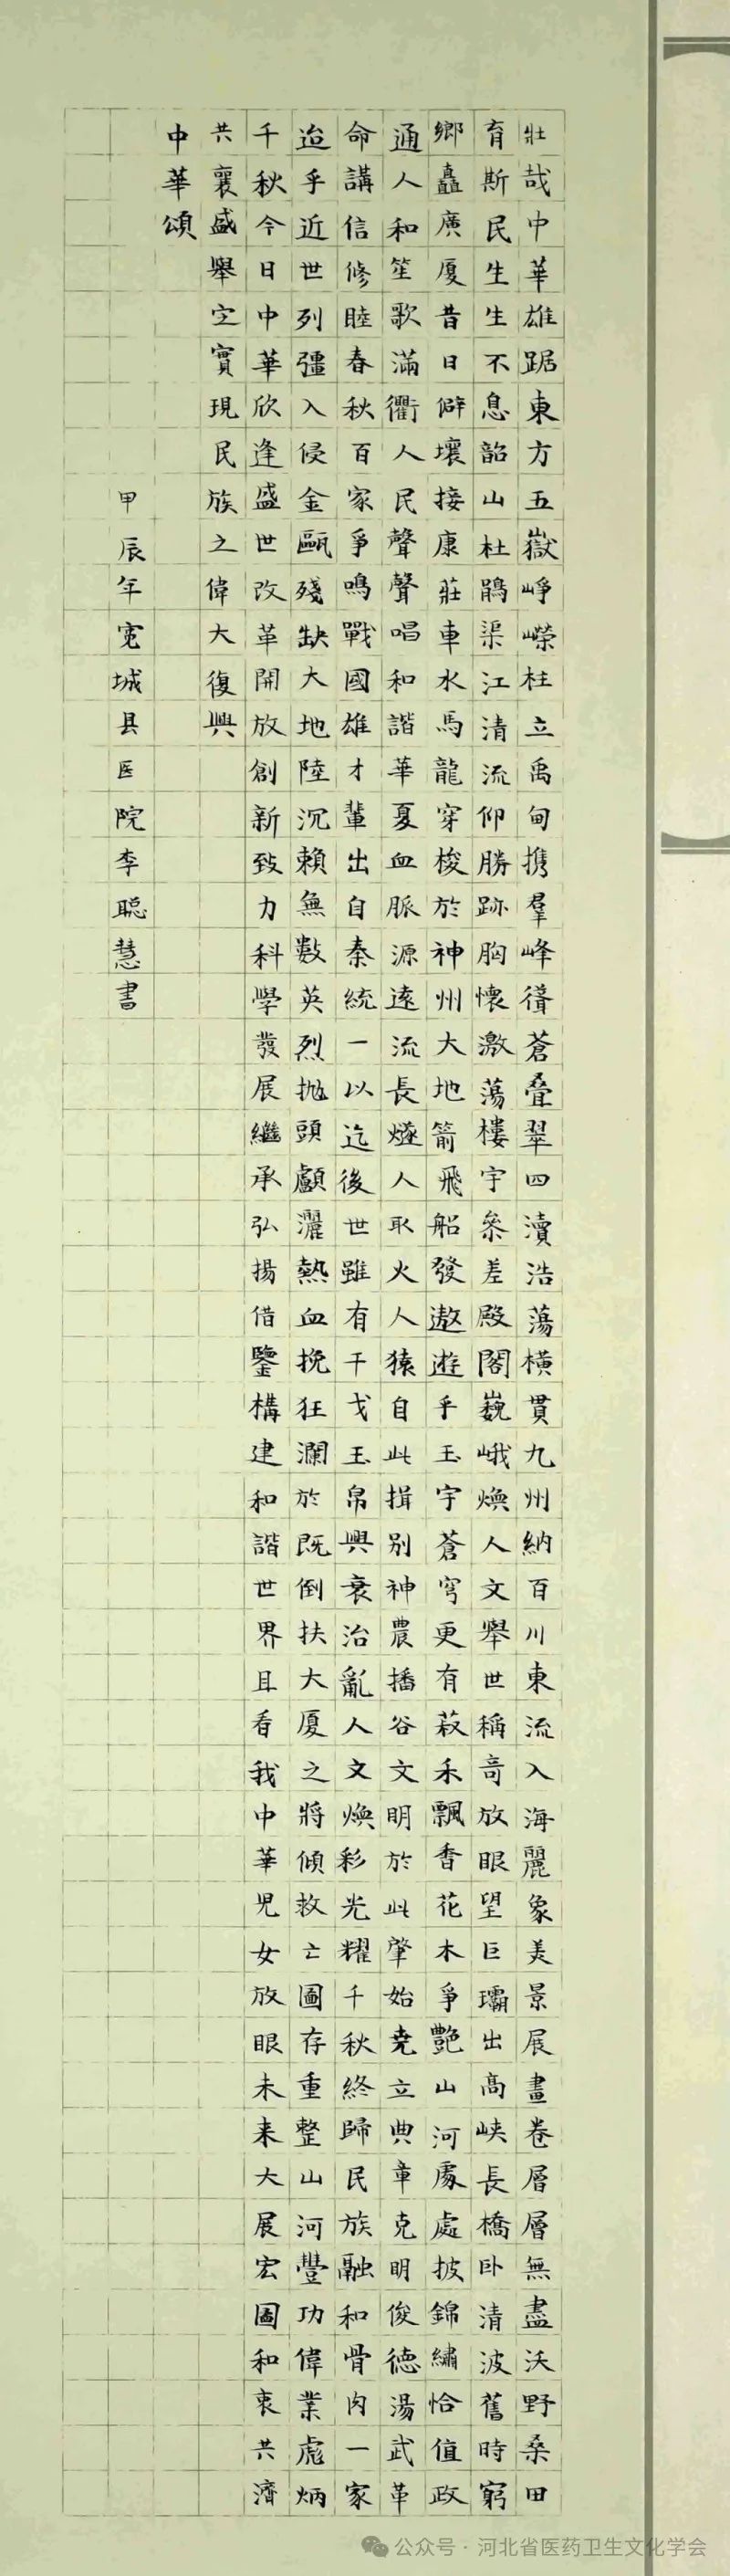 壯哉中華雄踞東方五嶽崢嶸柱立禹甸携羣峰聳蒼叠翠四瀆浩蕩橫貫九州納百川東流入海麗象美景展畫卷層層無盡沃野桑田
育斯民生生不息韶山杜鵑渠江清流仰勝跡胸懷激蕩樓宇叅差殿閣巍峨煥人文舉世稱奇放眼望巨壩出高峽長橋卧清波舊時窮
鄉矗廣厦昔日僻壤接康莊車水馬龍穿梭於神州大地箭飛船發遨遊乎玉宇蒼穹更有菽禾飄香花木爭艷山河處處披錦繡恰值政
通人和笙歌滿衢人民聲聲唱和諧華夏血脈源遠流長燧人取火人猿自此揖别神農播谷文明於此肇始堯立典章克明俊德湯武革
命講信修睦春秋百家爭鳴戰國雄才輩出自秦統一以迄後世雖有干戈玉帛興衰治亂人文煥彩光耀千秋終歸民族融和骨肉一家
迨乎近世列彊入侵金甌殘缺大地陸沉賴無數英烈抛頭顱灑熱血挽狂瀾於既倒扶大厦之將傾救亡圖存重整山河豐功偉業彪炳
千秋今日中華欣逢盛世改革開放創新致力科學發展繼承弘揚借鑒構建和諧世界且看我中華兒女放眼未来大展宏圖和衷共濟
共襄盛舉定實現民族之偉大復興
中華頌
甲辰年宽城县医院李聰慧書
公众号·河北省医药卫生文化学会